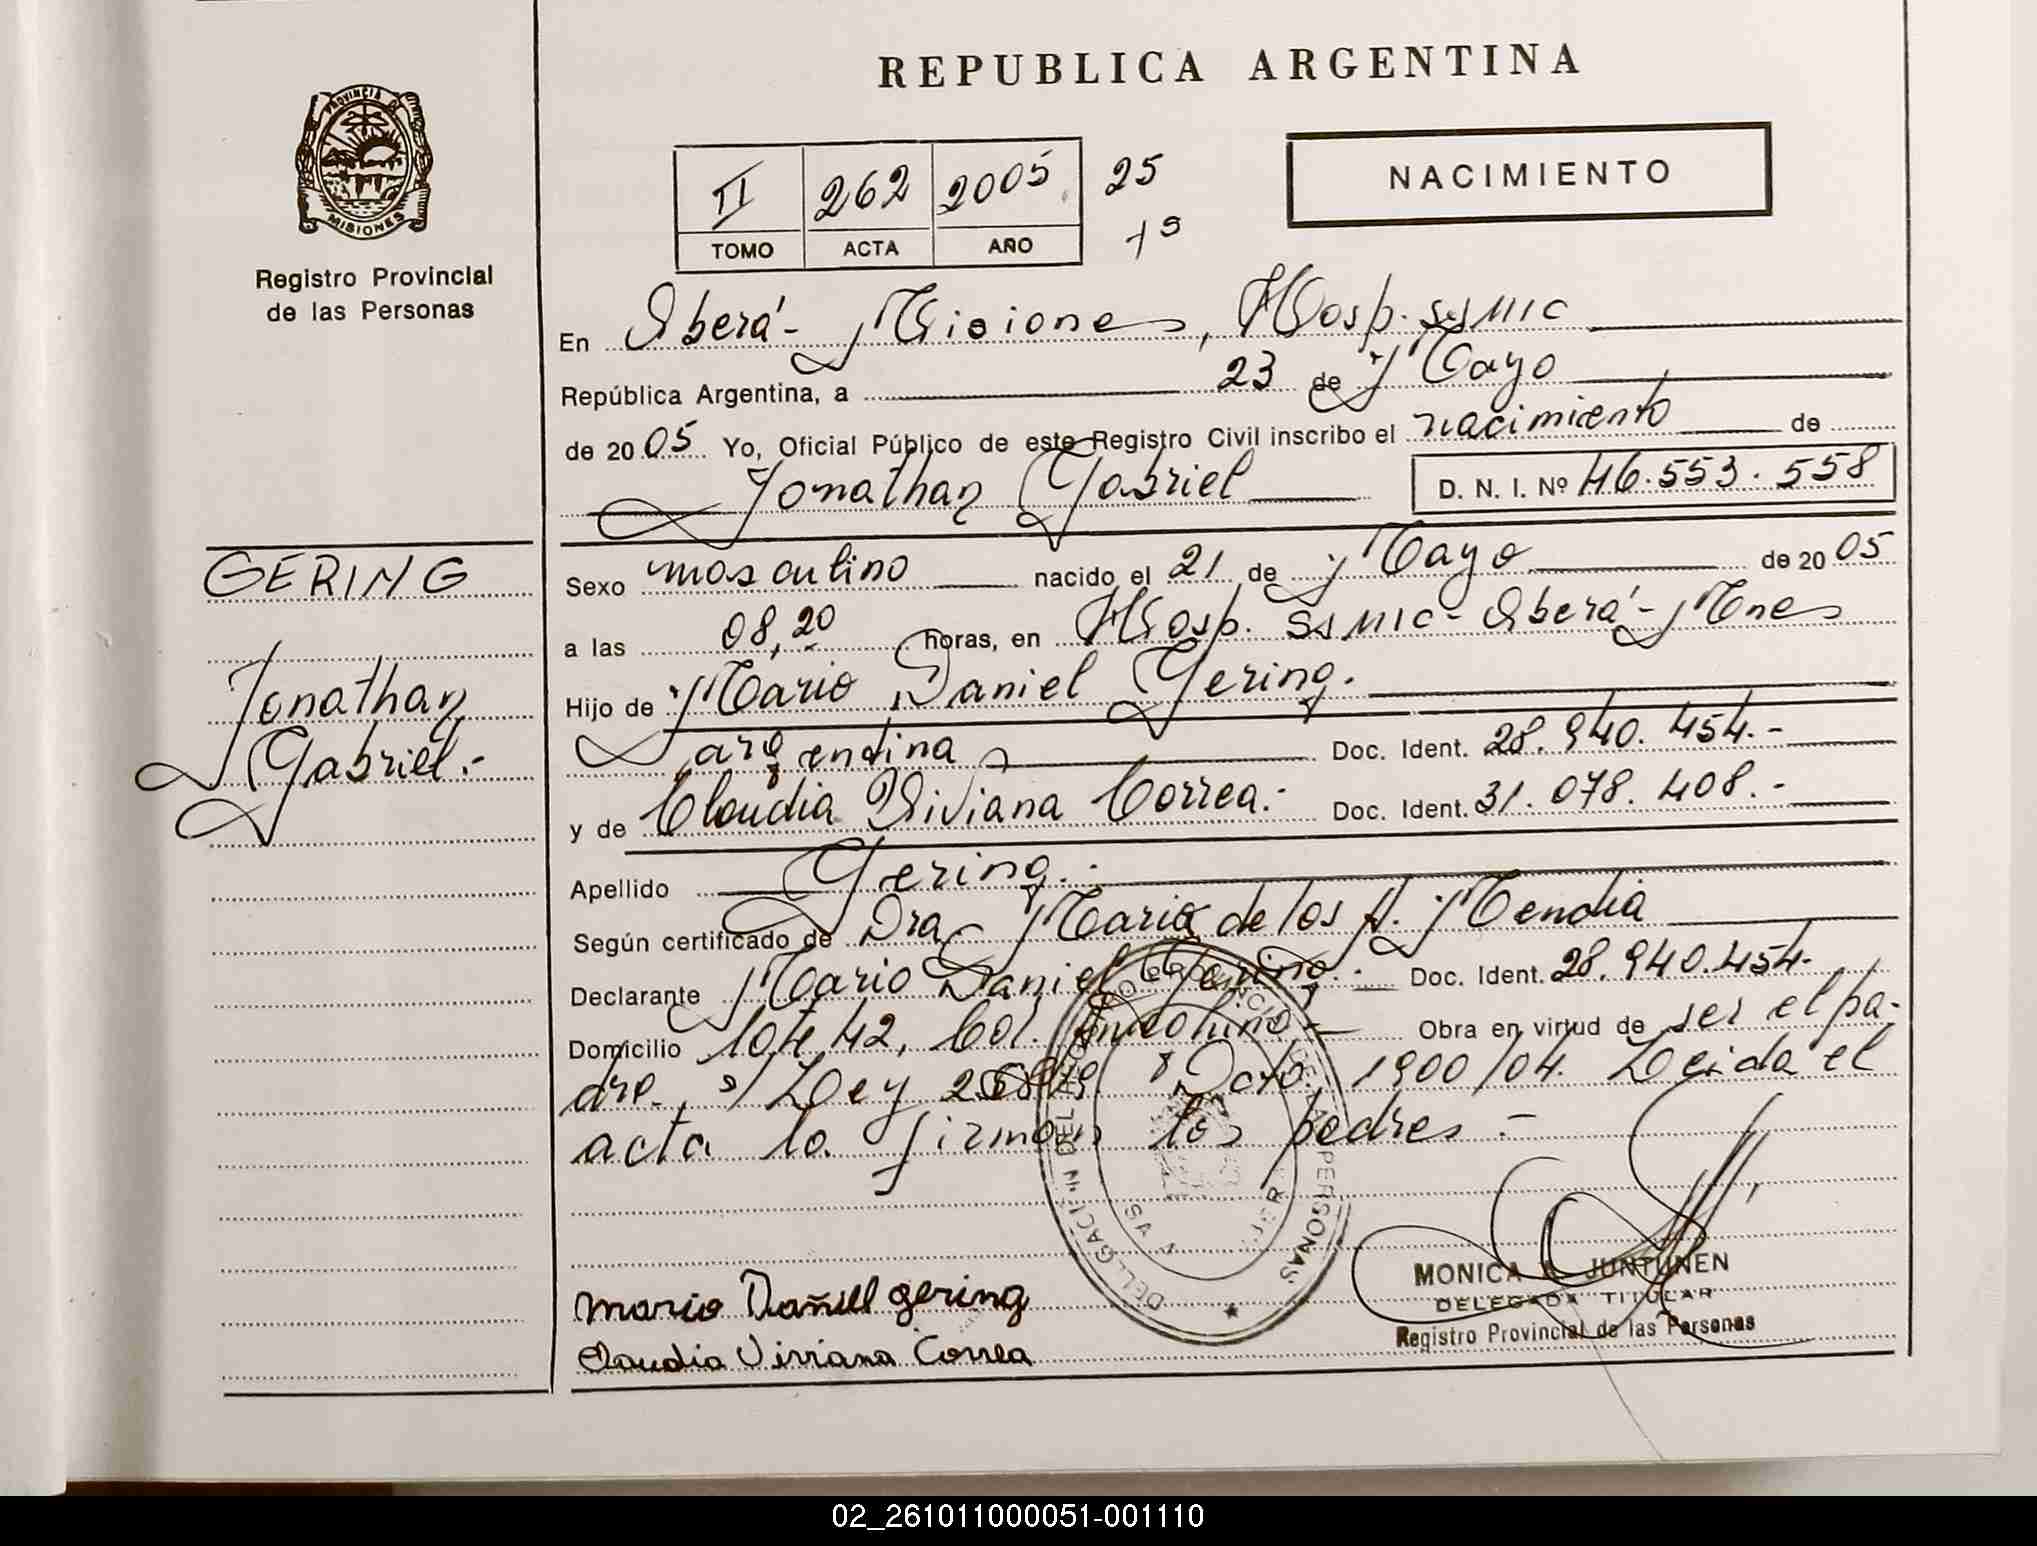 REPUBLICA ARGENTINA
PROVINCIA DE
MISIONES
Registro Provincial
de las Personas
II 262 2005 25
TOMO ACTA AÑO
NACIMIENTO
En Oberá - Misiones, Hosp. SSMIC
República Argentina, a 23 de Mayo
de 2005 Yo, Oficial Público de este Registro Civil inscribo el nacimiento de
Jonathan Gabriel D. N. I. Nº 46.553.558
GERING
Jonathan
Gabriel.-
Sexo masculino nacido el 21 de Mayo de 2005
a las 08,20 horas, en Hosp. SSMIC - Oberá - Mnes
Hijo de Mario Daniel Gering.
argentina Doc. Ident. 28.940.454.-
y de Claudia Viviana Correa.- Doc. Ident. 31.078.408.-
Apellido Gering.-
Según certificado de Dra María de los A. Mendia
Declarante Mario Daniel Gering.- Doc. Ident. 28.940.454.
Domicilio lote 42, Col. Obra en virtud de ser el pa-
dre, s/ Ley Dcto. 1900/04. Leida el
acta la firman los padres.-
Mario Daniel gering
Claudia Viviana Correa
MONICA JUNTUNEN
DELEGADA TITULAR
Registro Provincial de las Personas
02_261011000051-001110